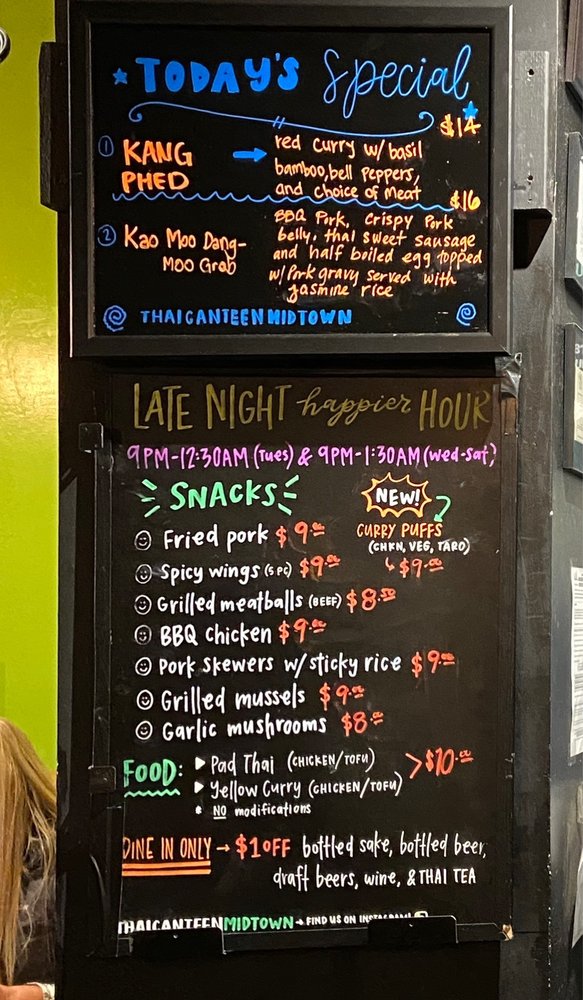 TODAY'S Special
$14
① KANG PHED → red curry w/ basil
bamboo, bell peppers,
and choice of meat
$16
② Kao Moo Dang-
Moo Grob
BBQ Pork, crispy pork
belly, thai sweet sausage
and half boiled egg topped
w/ pork gravy served with
jasmine rice
THAICANTEENMIDTOWN
LATE NIGHT happier HOUR
9PM-12:30AM (Tues) & 9PM-1:30AM (Wed-Sat)
SNACKS
NEW!
CURRY PUFFS
(CHKN, VEG, TARO)
$9.00
Fried pork $9.00
Spicy wings (5 PC) $9.00
Grilled meatballs (BEEF) $8.50
BBQ chicken $9.00
Pork skewers w/ sticky rice $9.00
Grilled mussels $9.00
Garlic mushrooms $8.00
FOOD: ▶ Pad Thai (CHICKEN/TOFU)
▶ Yellow Curry (CHICKEN/TOFU)
> $10.00
* NO modifications
DINE IN ONLY → $1 OFF bottled sake, bottled beer,
draft beers, wine, & THAI TEA
THAICANTEENMIDTOWN → FIND US ON INSTAGRAM!